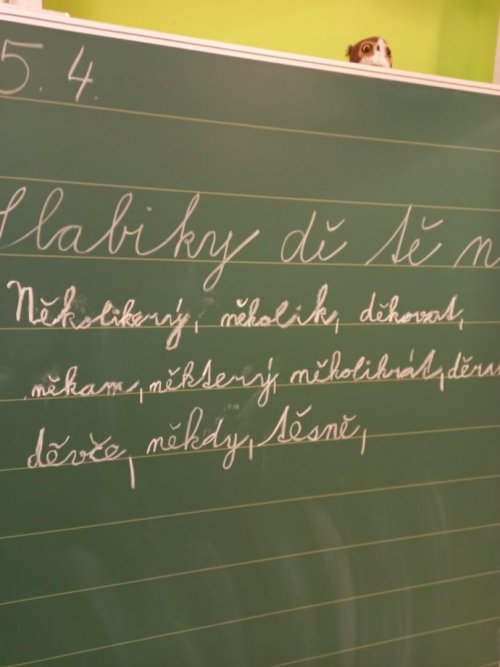 5. 4.
Slabiky dě tě n
Několikerý, několik, děkovat,
někam, některý, několikrát,
děvče, někdy, těsně,